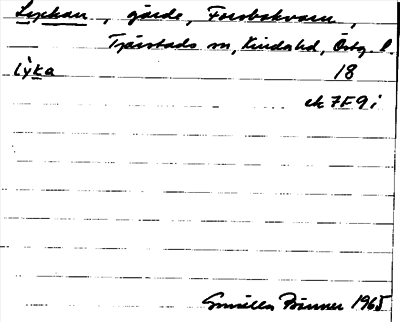 Lyckan, gärde, Forsbokvarn,
Tjärstads sn, Kinda hd, Östg. l.
lyka 18
ek 7F9i
Gunilla Bonner 1965